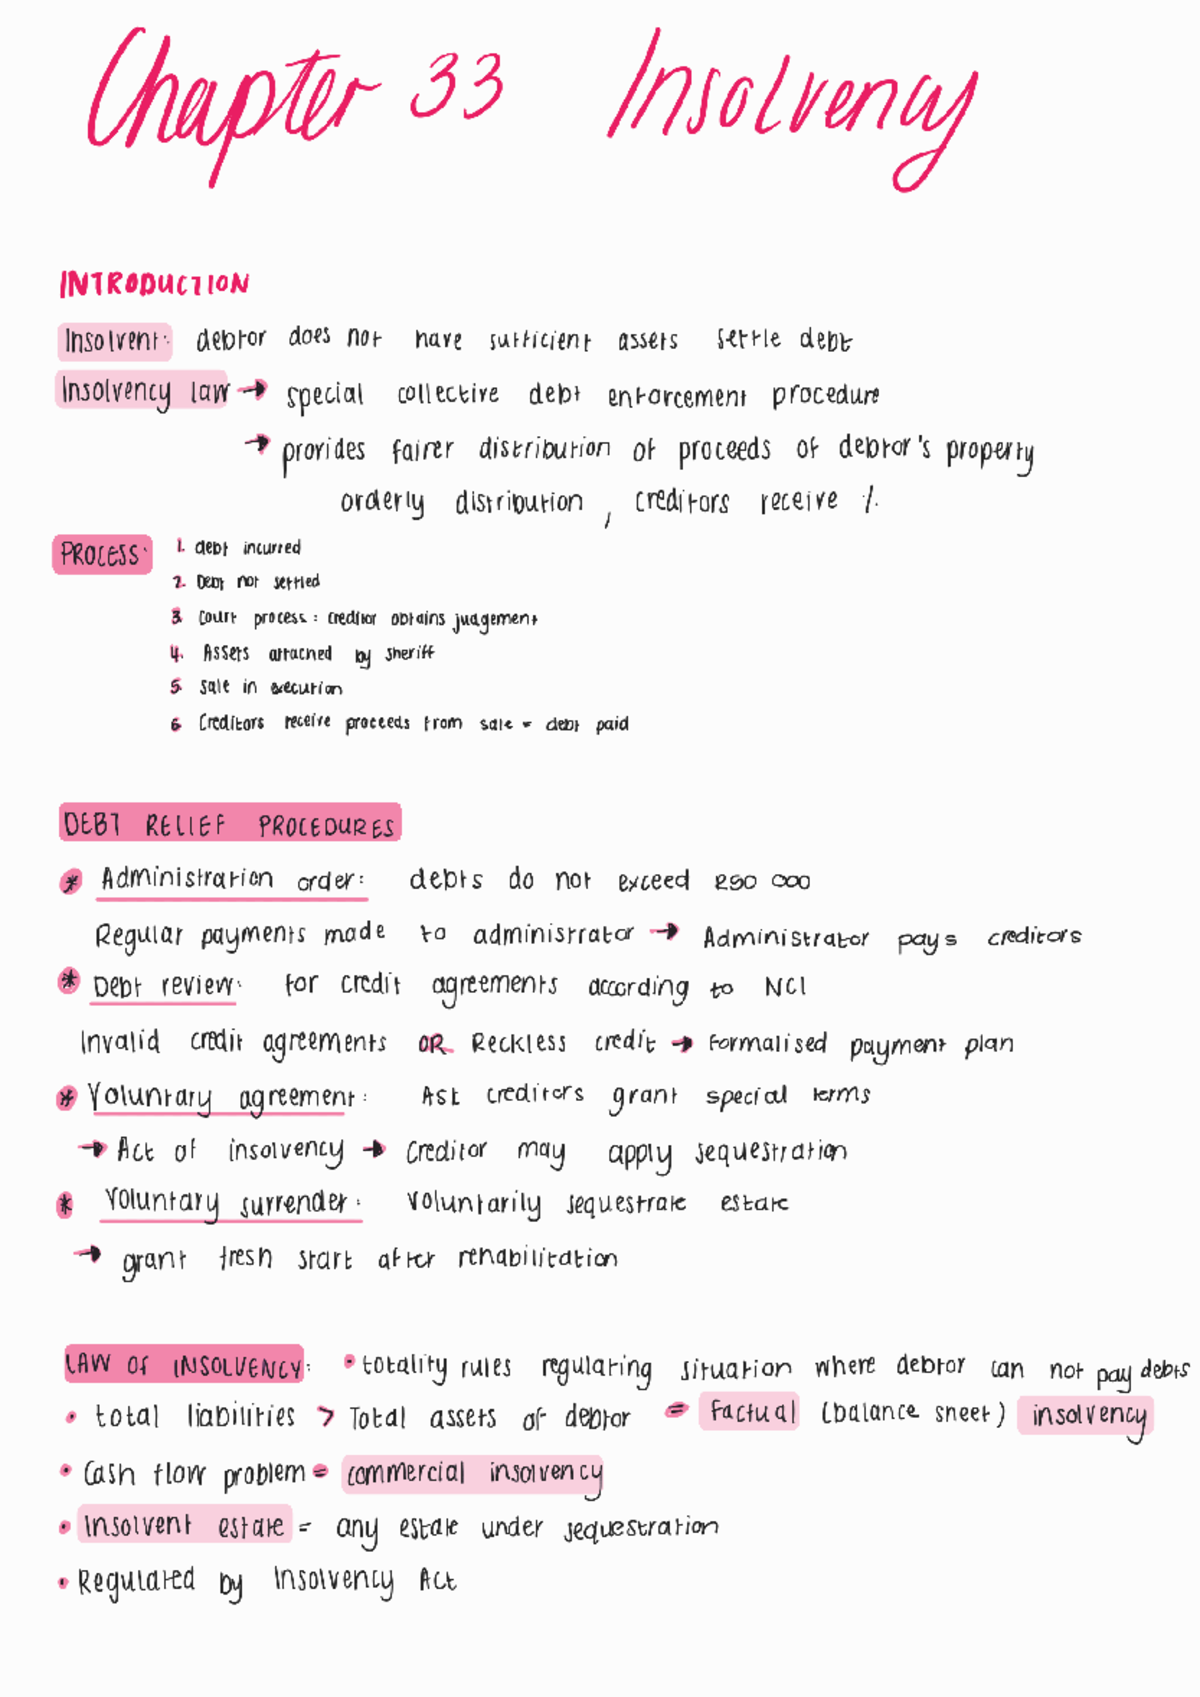 Chapter 33 Insolvency
INTRODUCTION
Insolvent: debtor does not have sufficient assets settle debt
Insolvency law → special collective debt enforcement procedure
→ provides fairer distribution of proceeds of debtor's property
orderly distribution, creditors receive %
PROCESS: 1. debt incurred
2. Debt not settled
3. Court process: creditor obtains judgement
4. Assets attached by sheriff
5. Sale in execution
6. Creditors receive proceeds from sale = debt paid
DEBT RELIEF PROCEDURES
* Administration order: debts do not exceed R50 000
Regular payments made to administrator → Administrator pays creditors
* Debt review: for credit agreements according to NCI
Invalid credit agreements OR Reckless credit → Formalised payment plan
* Voluntary agreement: Ask creditors grant special terms
→ Act of insolvency → Creditor may apply sequestration
* Voluntary surrender: Voluntarily sequestrate estate
→ grant fresh start after rehabilitation
LAW OF INSOLVENCY: • totality rules regulating situation where debtor can not pay debts
• total liabilities > Total assets of debtor = Factual (balance sheet) insolvency
• Cash flow problem = commercial insolvency
• Insolvent estate = any estate under sequestration
• Regulated by Insolvency Act